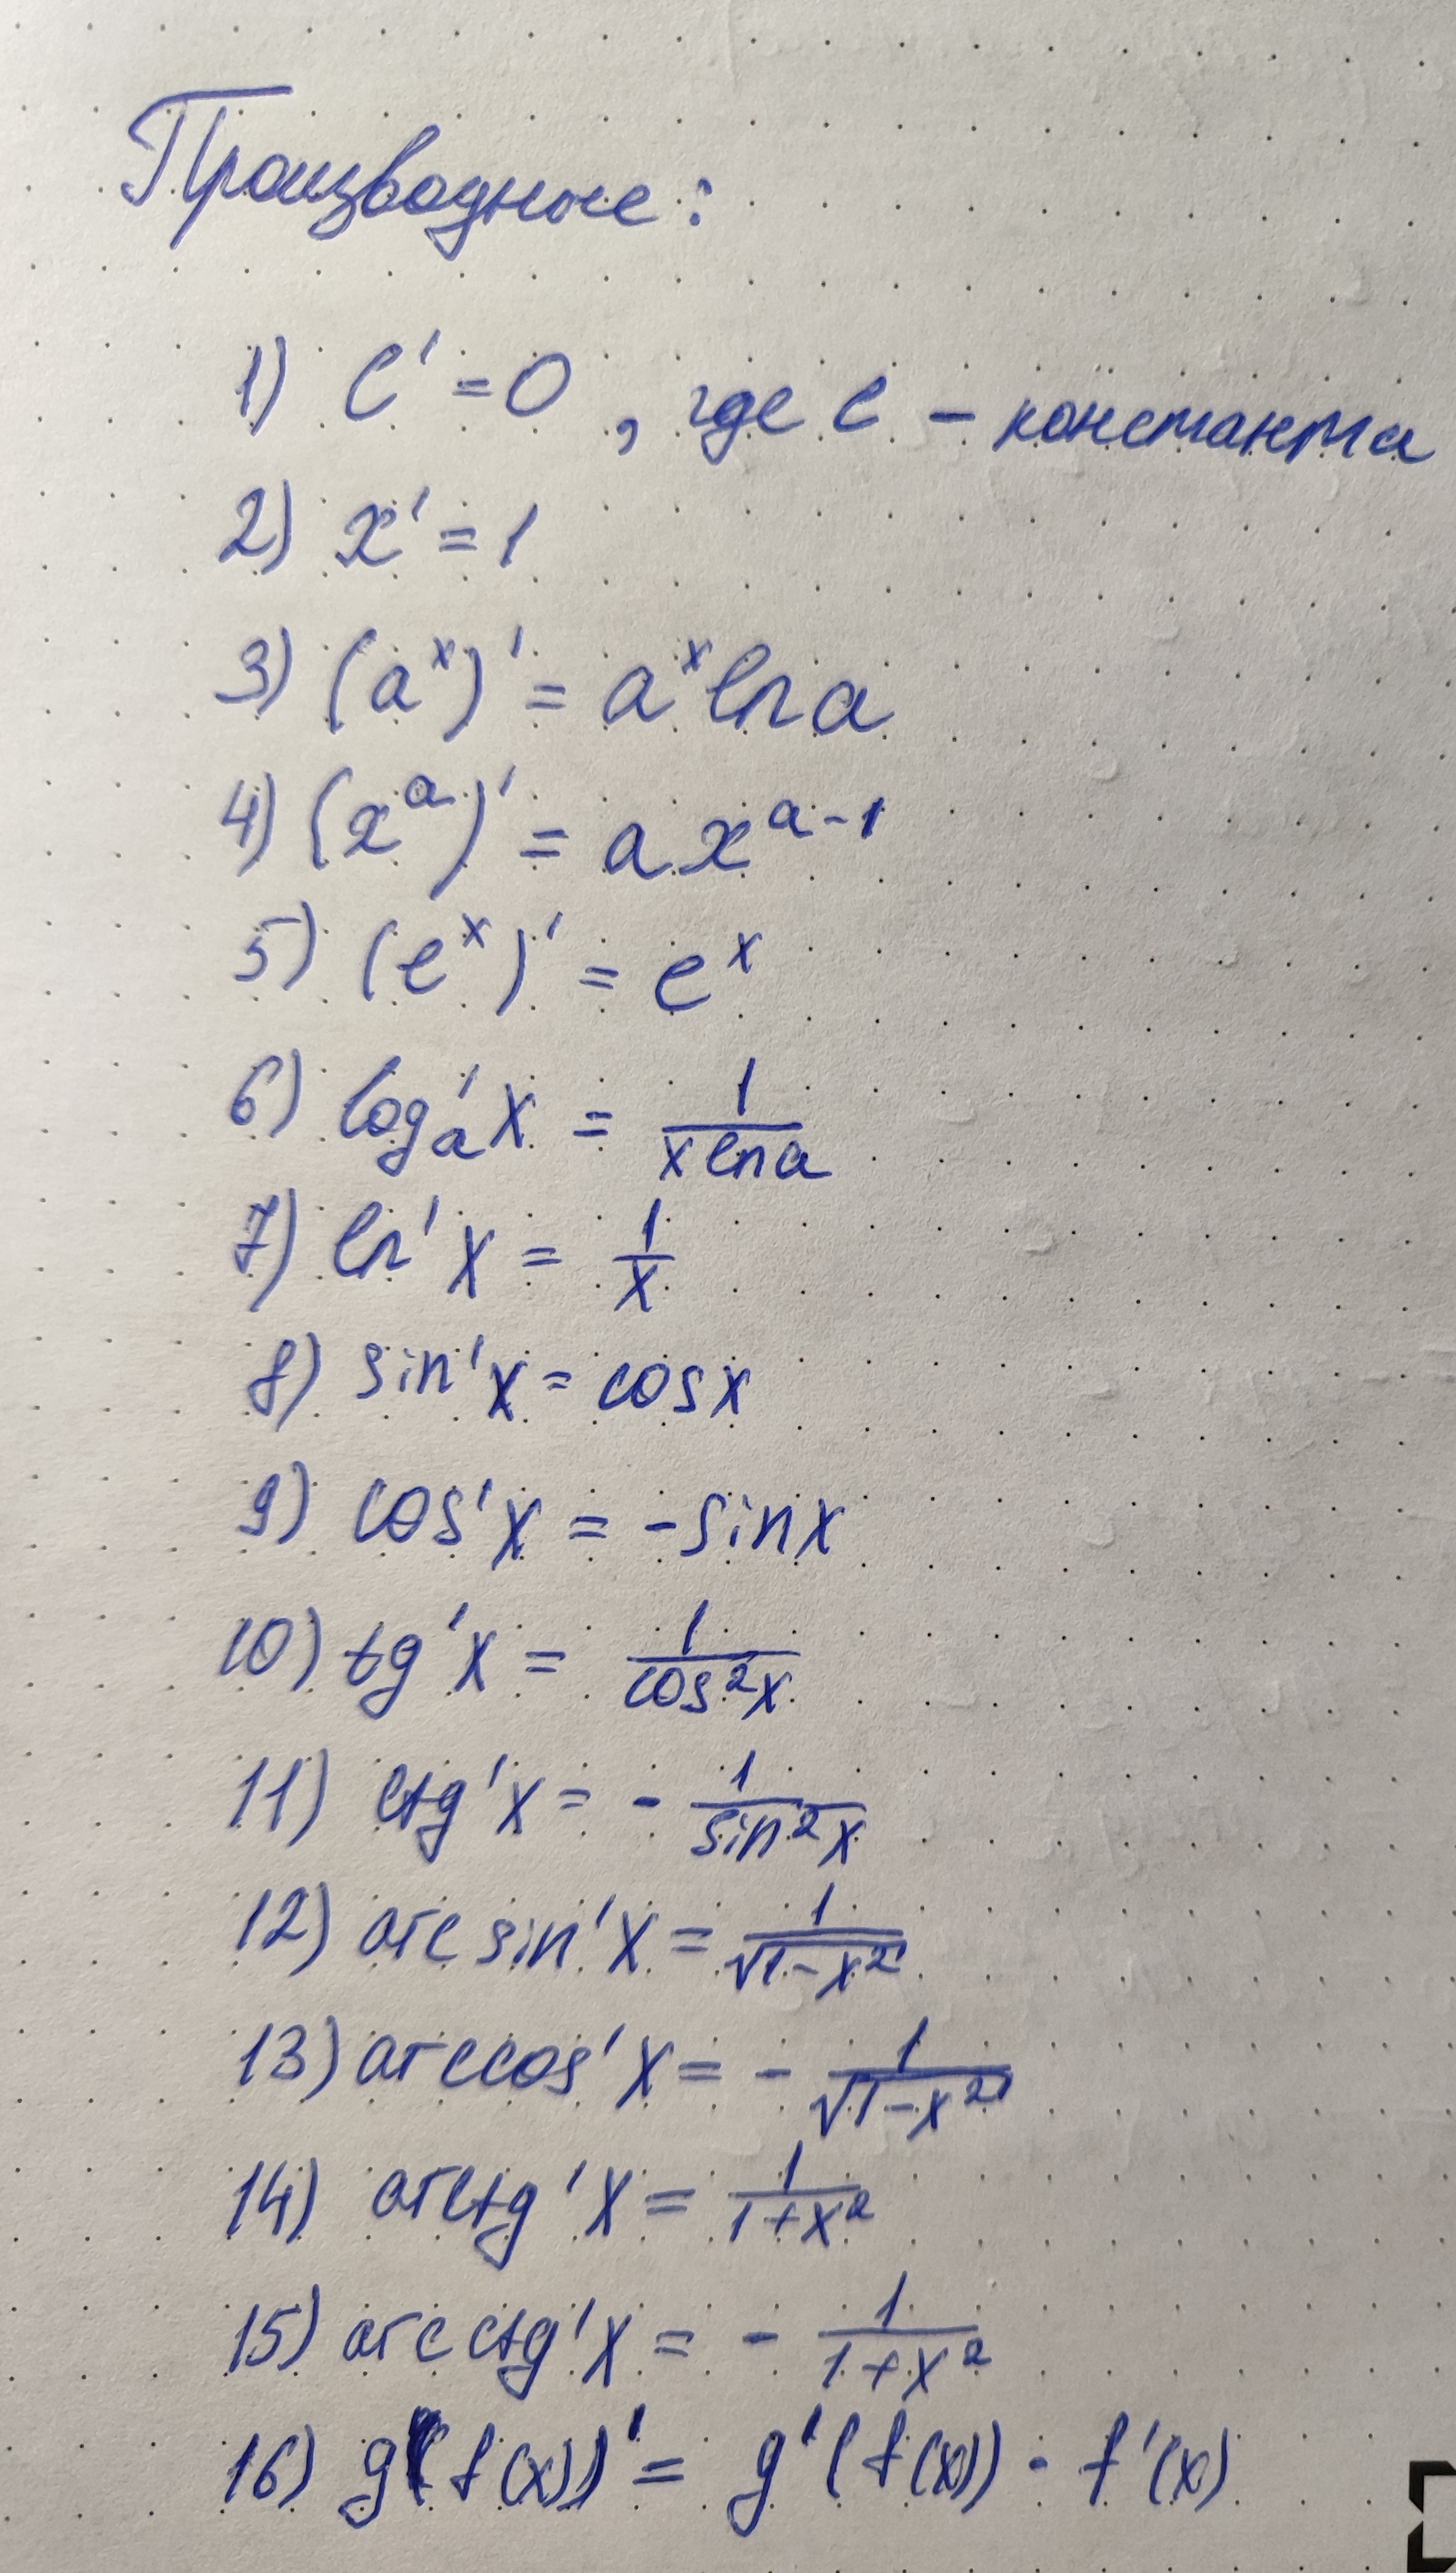 Производные:
1) C' = 0, где C - константа
2) x' = 1
3) (aˣ)' = aˣ ln a
4) (xᵃ)' = a xᵃ⁻¹
5) (eˣ)' = eˣ
6) logₐ' x = 1/(x ln a)
7) ln' x = 1/x
8) sin' x = cos x
9) cos' x = -sin x
10) tg' x = 1/cos² x
11) ctg' x = - 1/sin² x
12) arcsin' x = 1/√(1-x²)
13) arccos' x = - 1/√(1-x²)
14) arctg' x = 1/(1+x²)
15) arcctg' x = - 1/(1+x²)
16) g(f(x))' = g'(f(x)) · f'(x)